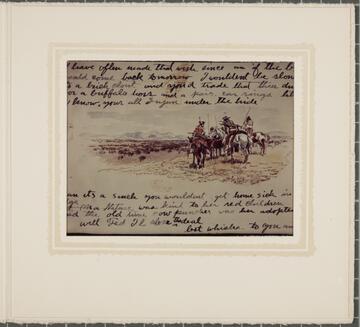 have often made that wish since an if the b
could come back tomorrow I wouldent be slow
a brick
and you'd trade that
for a buffalo hoss and a pair, ear rings
I know, your all Injun under the hide
an its a sinch you wouldent get home sick in
Nature was kind to her red children
and the old time cow puncher was her adopted
well Ted I'll close the deal
best whishes to you an